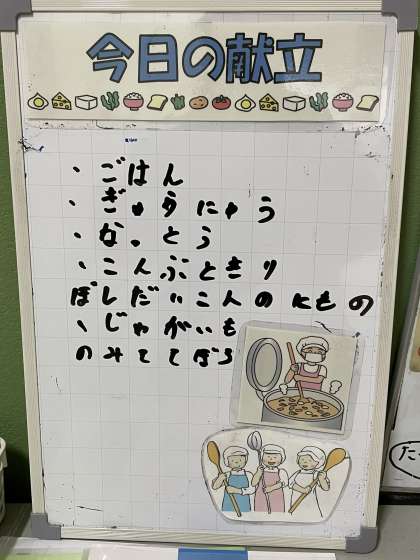 今日の献立
・ごはん
・ぎゅうにゅう
・なっとう
・こんぶときり
ぼしだいこんのにもの
・じゃがいも
のみててぼう